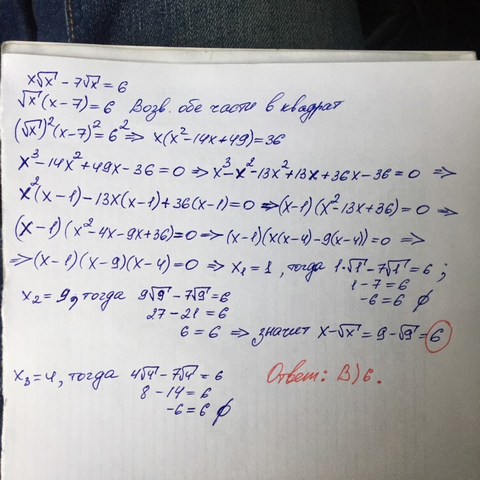 x√x - 7√x = 6
√x (x-7) = 6 Возв. обе части в квадрат
(√x)²(x-7)² = 6² => x(x²-14x+49) = 36
x³-14x²+49x-36=0 => x³-x²-13x²+13x+36x-36=0 =>
x²(x-1)-13x(x-1)+36(x-1)=0 => (x-1)(x²-13x+36)=0 =>
(x-1)(x²-4x-9x+36)=0 => (x-1)(x(x-4)-9(x-4))=0 =>
=> (x-1)(x-9)(x-4)=0 => x₁=1, тогда 1·√1-7√1=6;
1-7=6
-6=6 ∅
x₂=9, тогда 9√9-7√9=6
27-21=6
6=6 => значит x-√x=9-√9=6
x₃=4, тогда 4√4-7√4=6
8-14=6
-6=6 ∅
Ответ: B) 6.